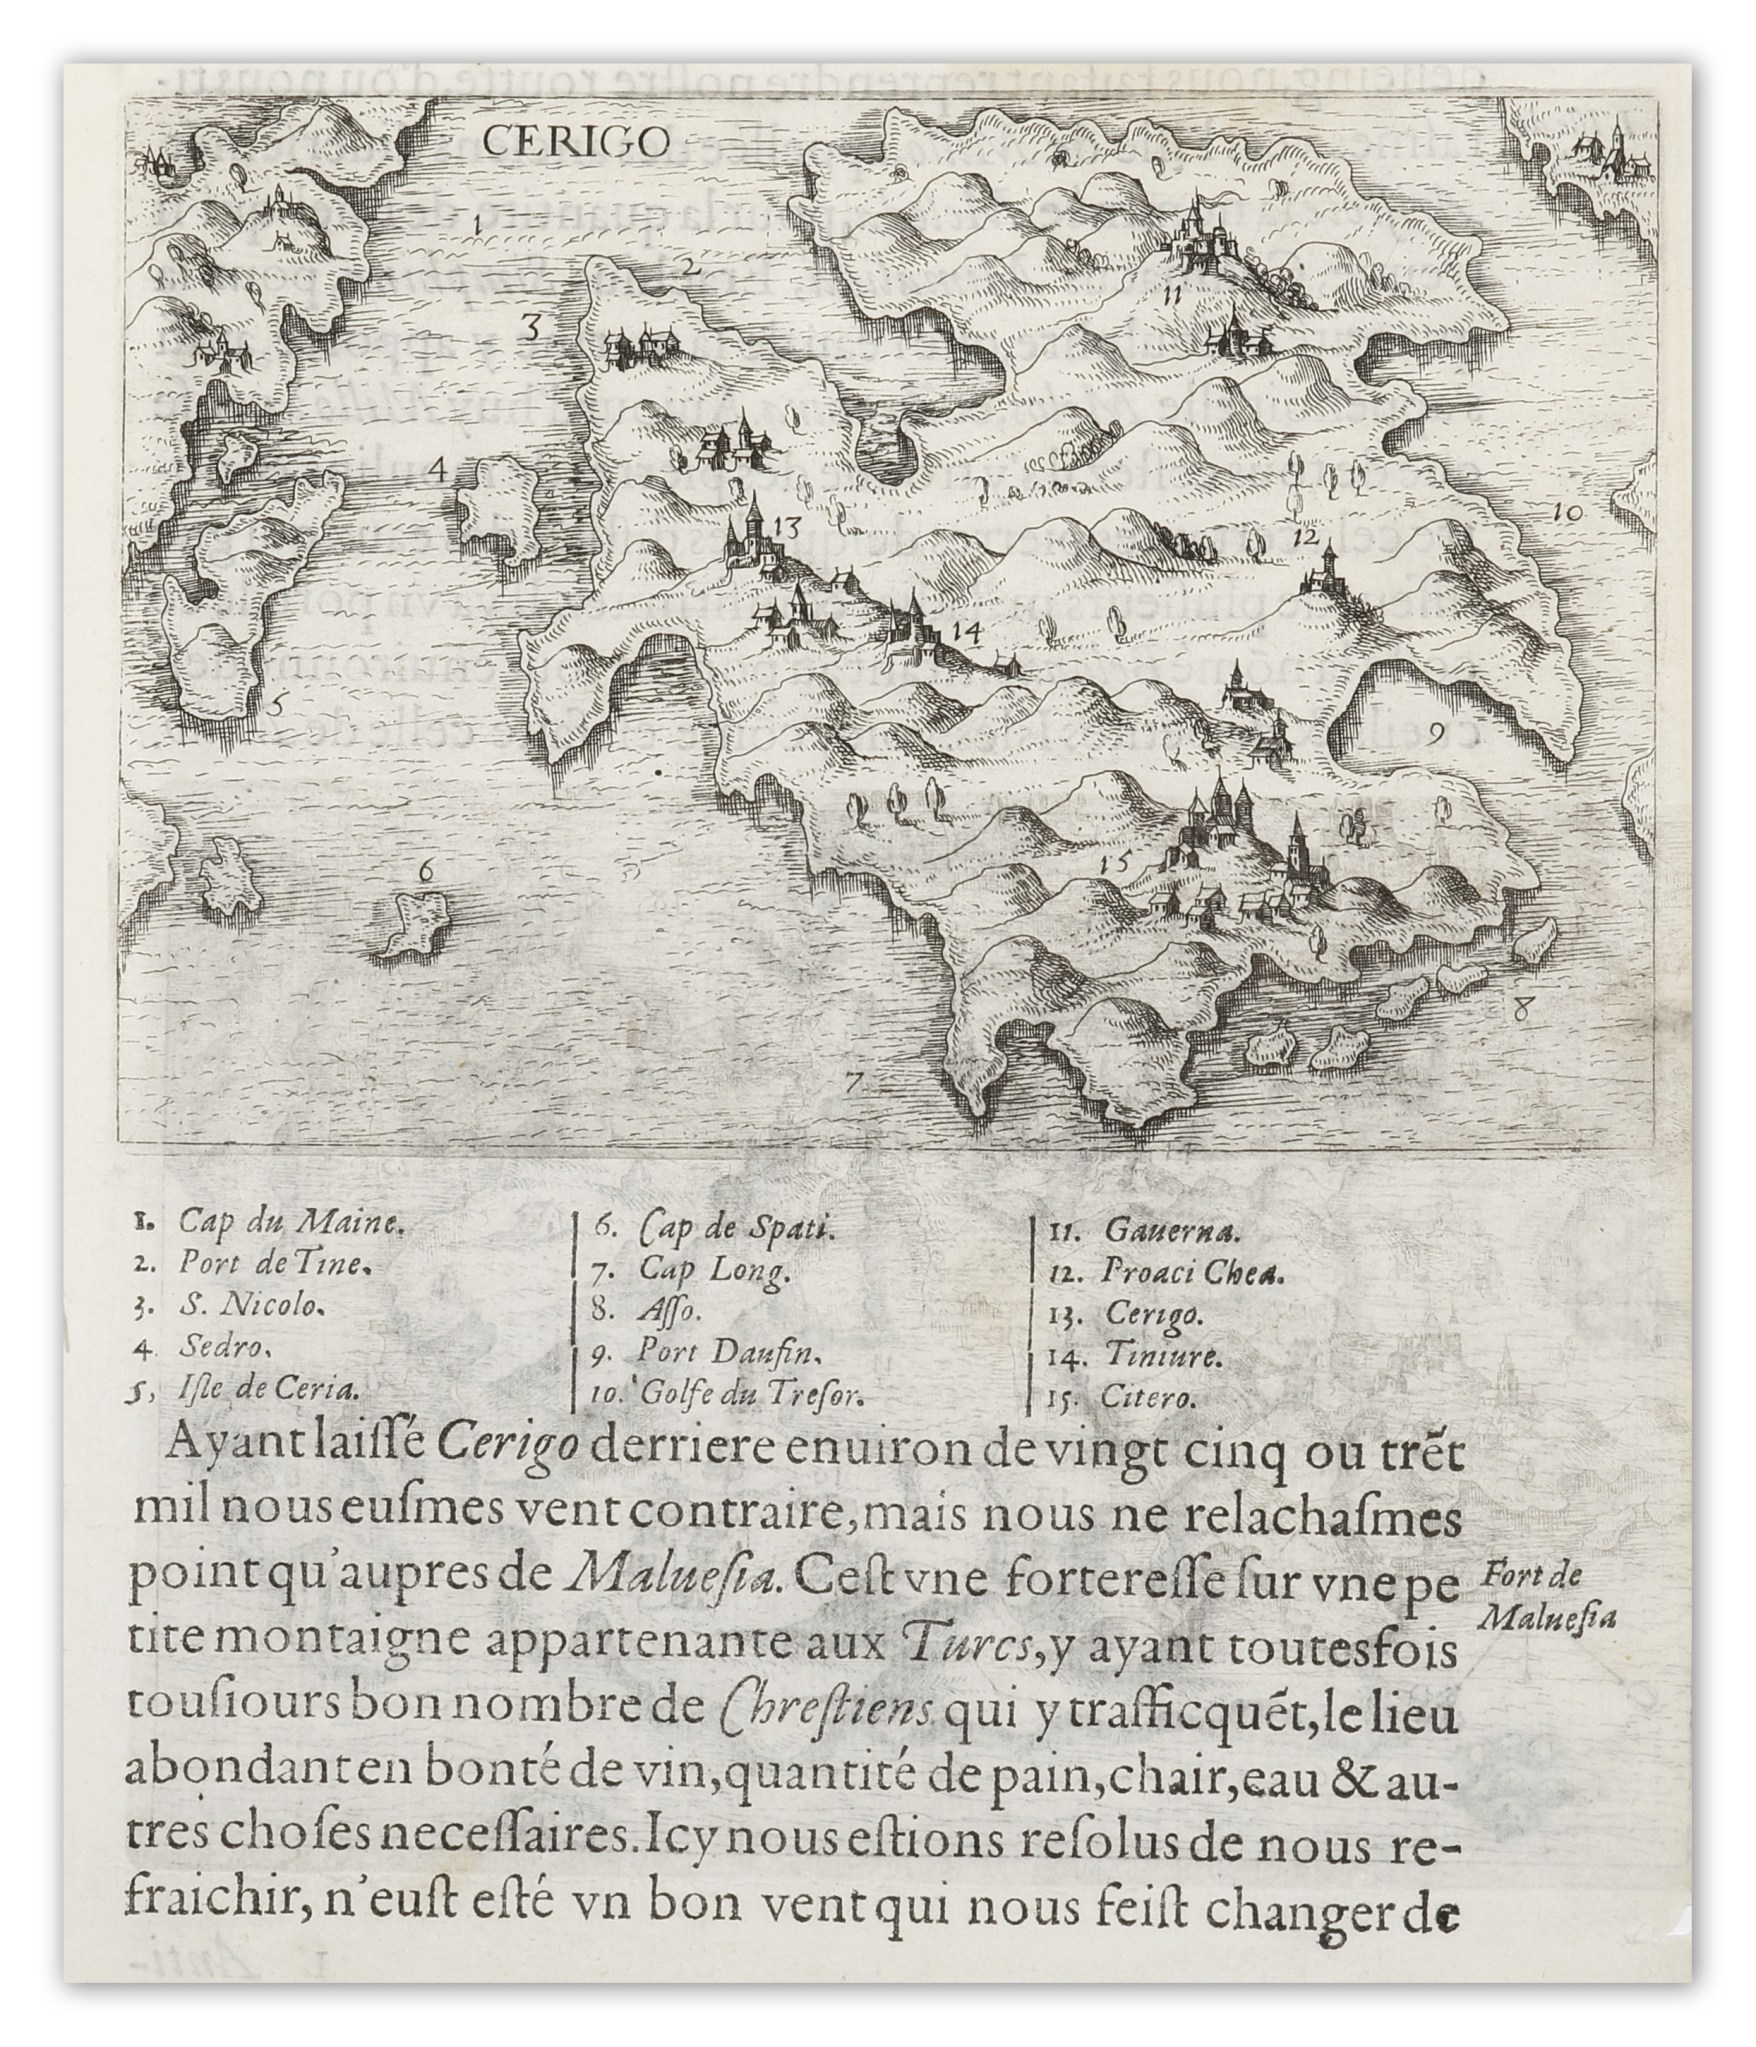 CERIGO
1
2
3
11
4
10
13
12
14
5
9
15
6
8
7
1. Cap du Maine.
2. Port de Tine.
3. S. Nicolo.
4. Sedro.
5, Iſle de Ceria.
6. Cap de Spati.
7. Cap Long.
8. Aſſo.
9. Port Daufin.
10. Golfe du Treſor.
11. Gauerna.
12. Proaci Chea.
13. Cerigo.
14. Tiniure.
15. Citero.
Ayant laiſſé Cerigo derriere enuiron de vingt cinq ou trẽt
mil nous euſmes vent contraire, mais nous ne relachaſmes
point qu'aupres de Malueſia. Ceſt vne fortereſſe ſur vne pe
tite montaigne appartenante aux Turcs, y ayant toutesfois
touſiours bon nombre de Chreſtiens qui y trafficquẽt, le lieu
abondant en bonté de vin, quantité de pain, chair, eau & au-
tres choſes neceſſaires. Icy nous eſtions reſolus de nous re-
fraichir, n'euſt eſté vn bon vent qui nous feiſt changer de
Fort de
Malueſia